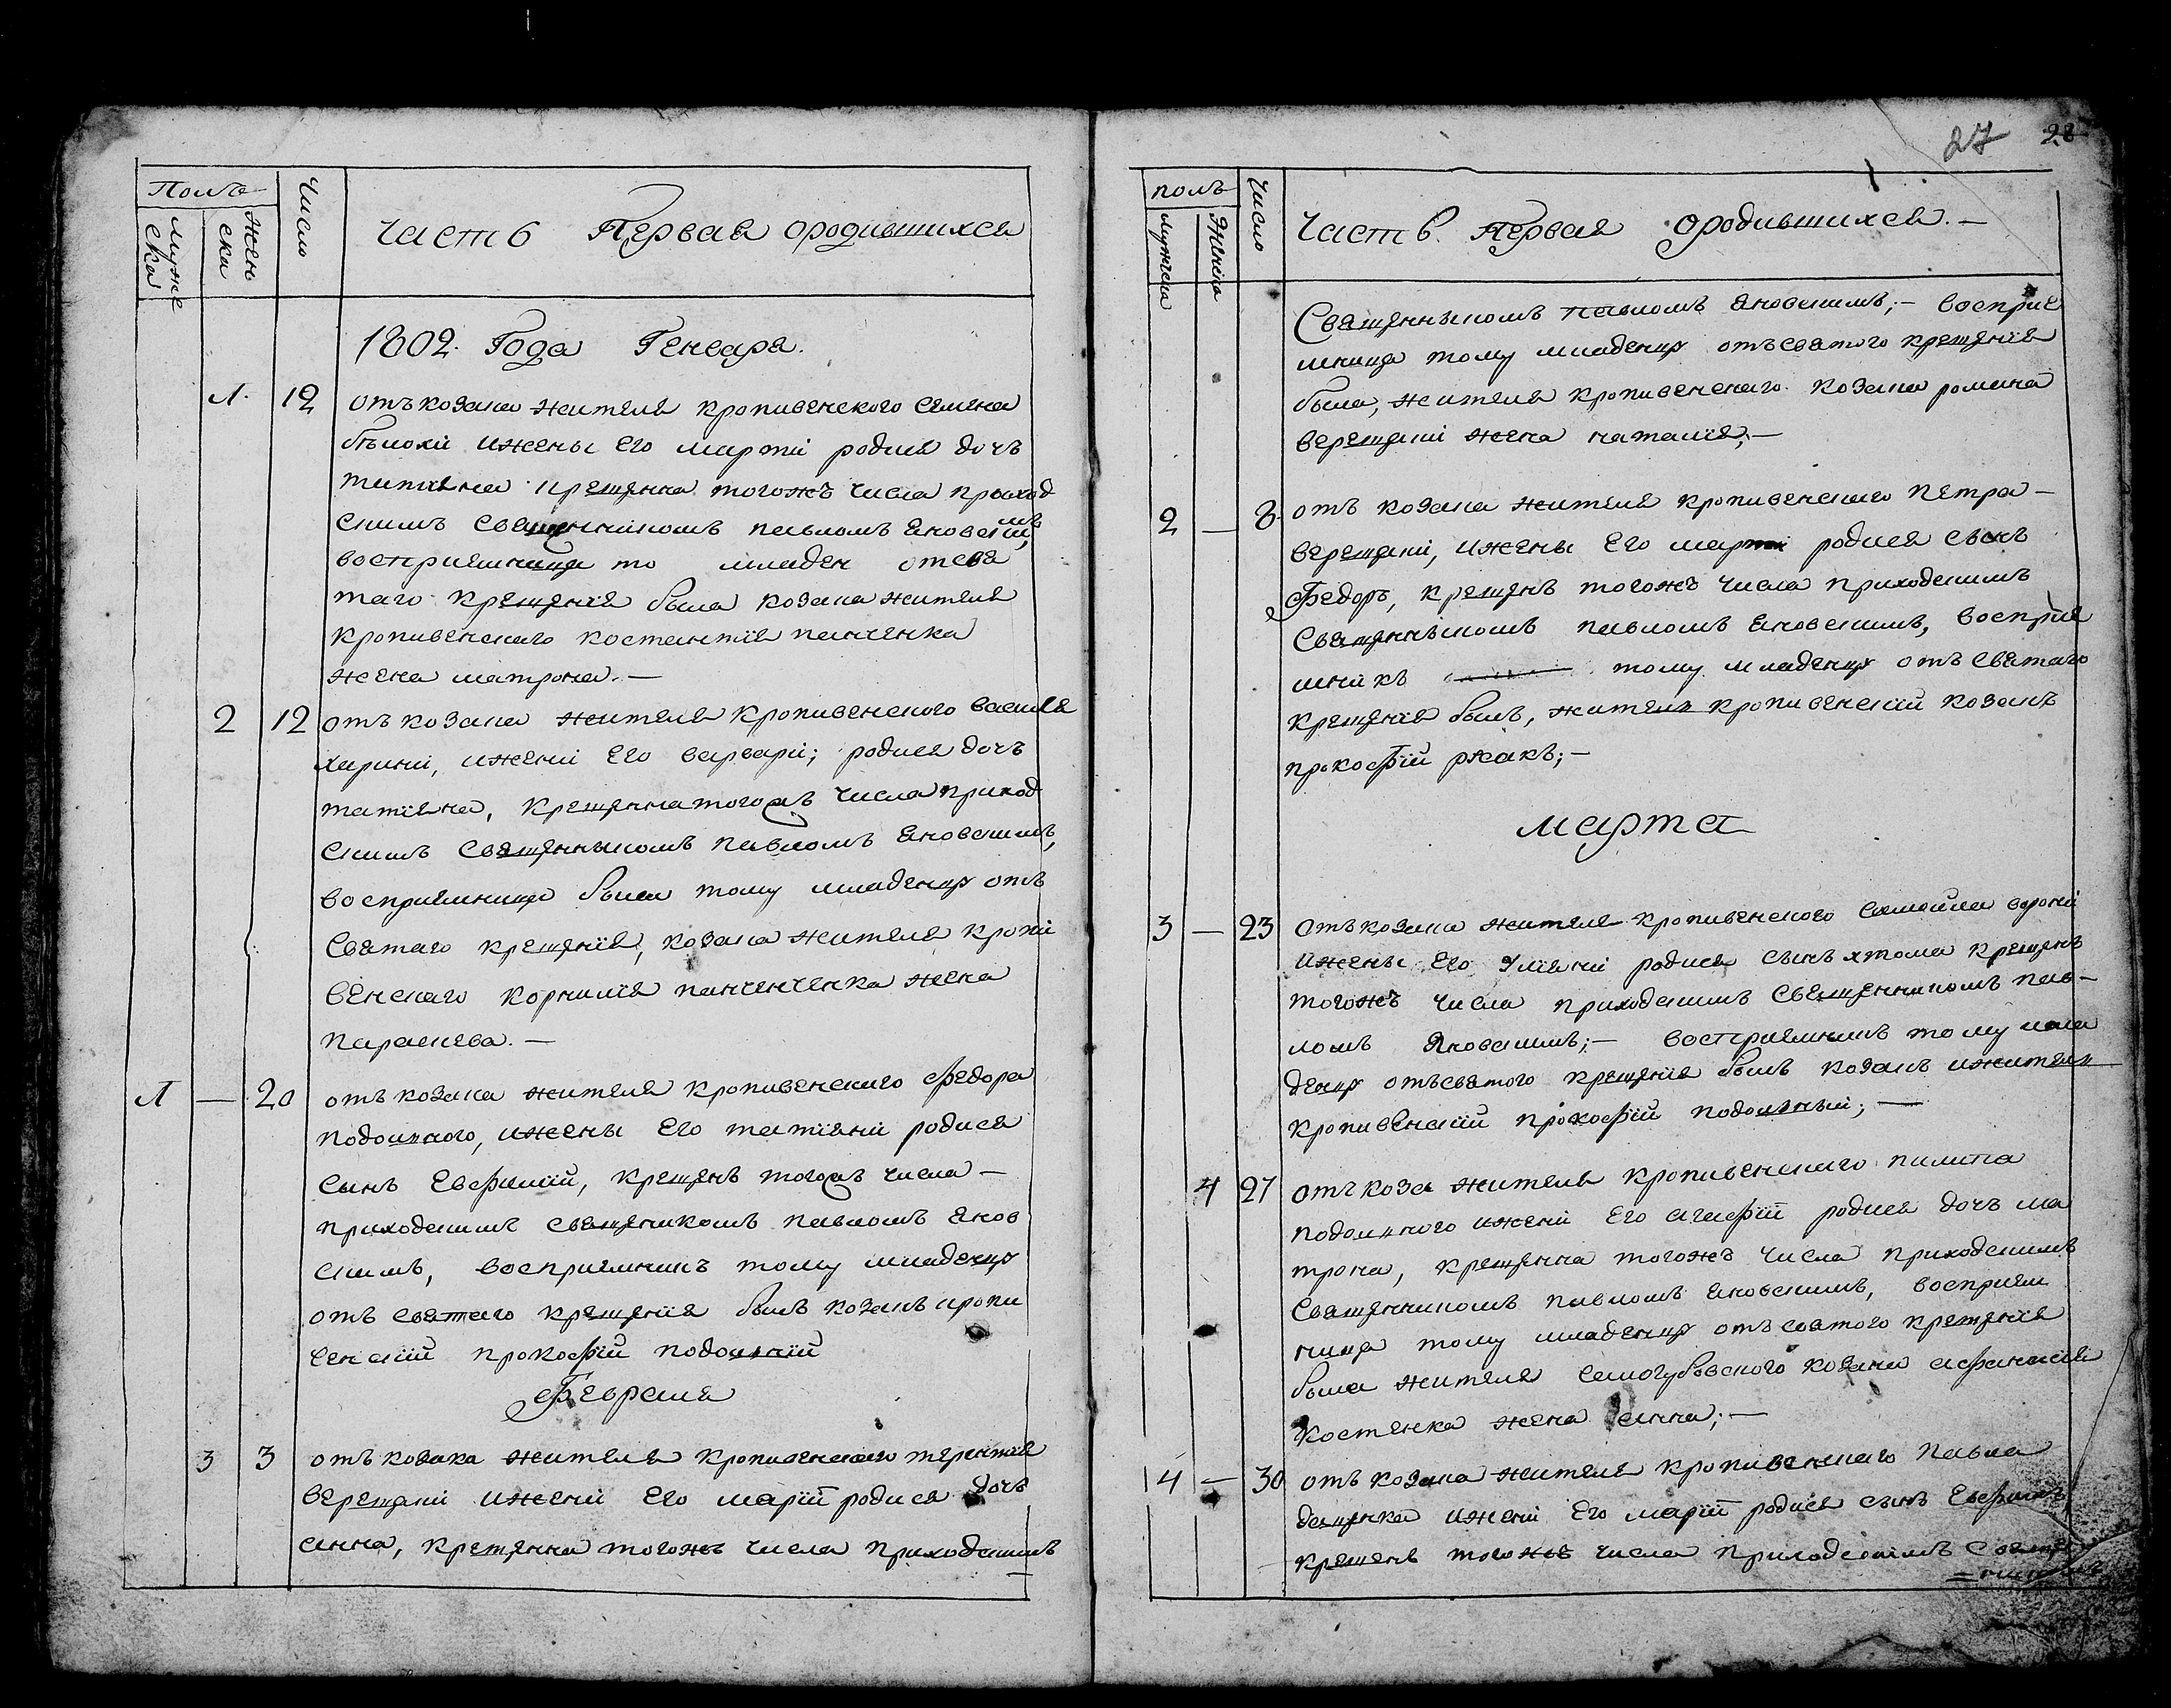 Полъ
Муже
ска
Жен
ска
Число
Часть Первая ородившихся
1802. Года Генваря.
1. 12 отъ козака жителя кропивенского семена
бѣлохи ижены его марти родися дочъ
татияна крещенна тогожъ числа приход
скимъ священникомъ павломъ яновским,
восприямница то младен отсвя
таго крещенія была козака жителя
кропивенского костантія панченка
жена матрона. —
2 12 отъ козака жителя кропивенского василя
харині, ижені его варварі; родися дочъ
татіяна, крещеннатогожъ числа приход
скимъ священныкомъ павломъ яновскимъ,
восприямница была тому младенцу отъ
святаго крещенія, козака жителя кропи
венскаго корнилія панченченка жена
параскева. —
1 — 20 отъ козака жителя кропивенскаго федора
подоляного, ижены его татіяни родися
сынъ евфимій, крещенъ тогожъ числа —
приходскимъ священикомъ павломъ янов
скимъ, восприямникъ тому младенцу
отъ святаго крещенія былъ козакъ кропи
венскій прокофій подоляній
Февраля
3 3 отъ козака жителя кропивенскаго терентія
верещаки ижені его марій родися дочъ
анна, крещенна тогожъ числа приходскимъ
27 28
полъ
Мужеска
Женска
Число
Часть. Первая ородившихся. —
Священныкомъ павломъ яновскимъ; — восприя
мница тому младенцу отъсвятого крещенія
была, жителя кропивенскаго козака романа
верещаки жена наталія; —
2 — 8. отъ козака жителя кропивенскаго петра —
верещаки, ижены его марти родися сынъ
Федоръ, крещенъ тогожъ числа приходскимъ
священныкомъ павломъ яновскимъ, восприя
мникъ тому младенцу отъ святаго
крещенія былъ, житель кропивенскій козакъ
прокофій ржакъ; —
марта
3 — 23 отъкозака жителя кропивенского самойла вороні
ижены его уліяні родися сынъ хтома крещенъ
тогожъ числа приходскимъ священникомъ пав —
ломъ яновскимъ; — восприямникъ тому мла
денцу отъсвятого крещенія былъ козакъ ижитель
кропивенскій прокофій подоляный; —
4 27 отъ коза жителя кропивенскаго пилипа
подоляного ижені его агафій родися дочъ ма
трона, крещенна тогожъ числа приходскимъ
священникомъ павломъ яновскимъ, восприям
ница тому младенцу отъ святого крещенія
была жителя самогубовского козака афанасія
костенка жена анна; —
4 — 30 отъ козака жителя кропивенскаго павла
ижені его марій родися сынъ евфимъ
крещенъ тогожъ числа приходскимъ священ
= никомъ